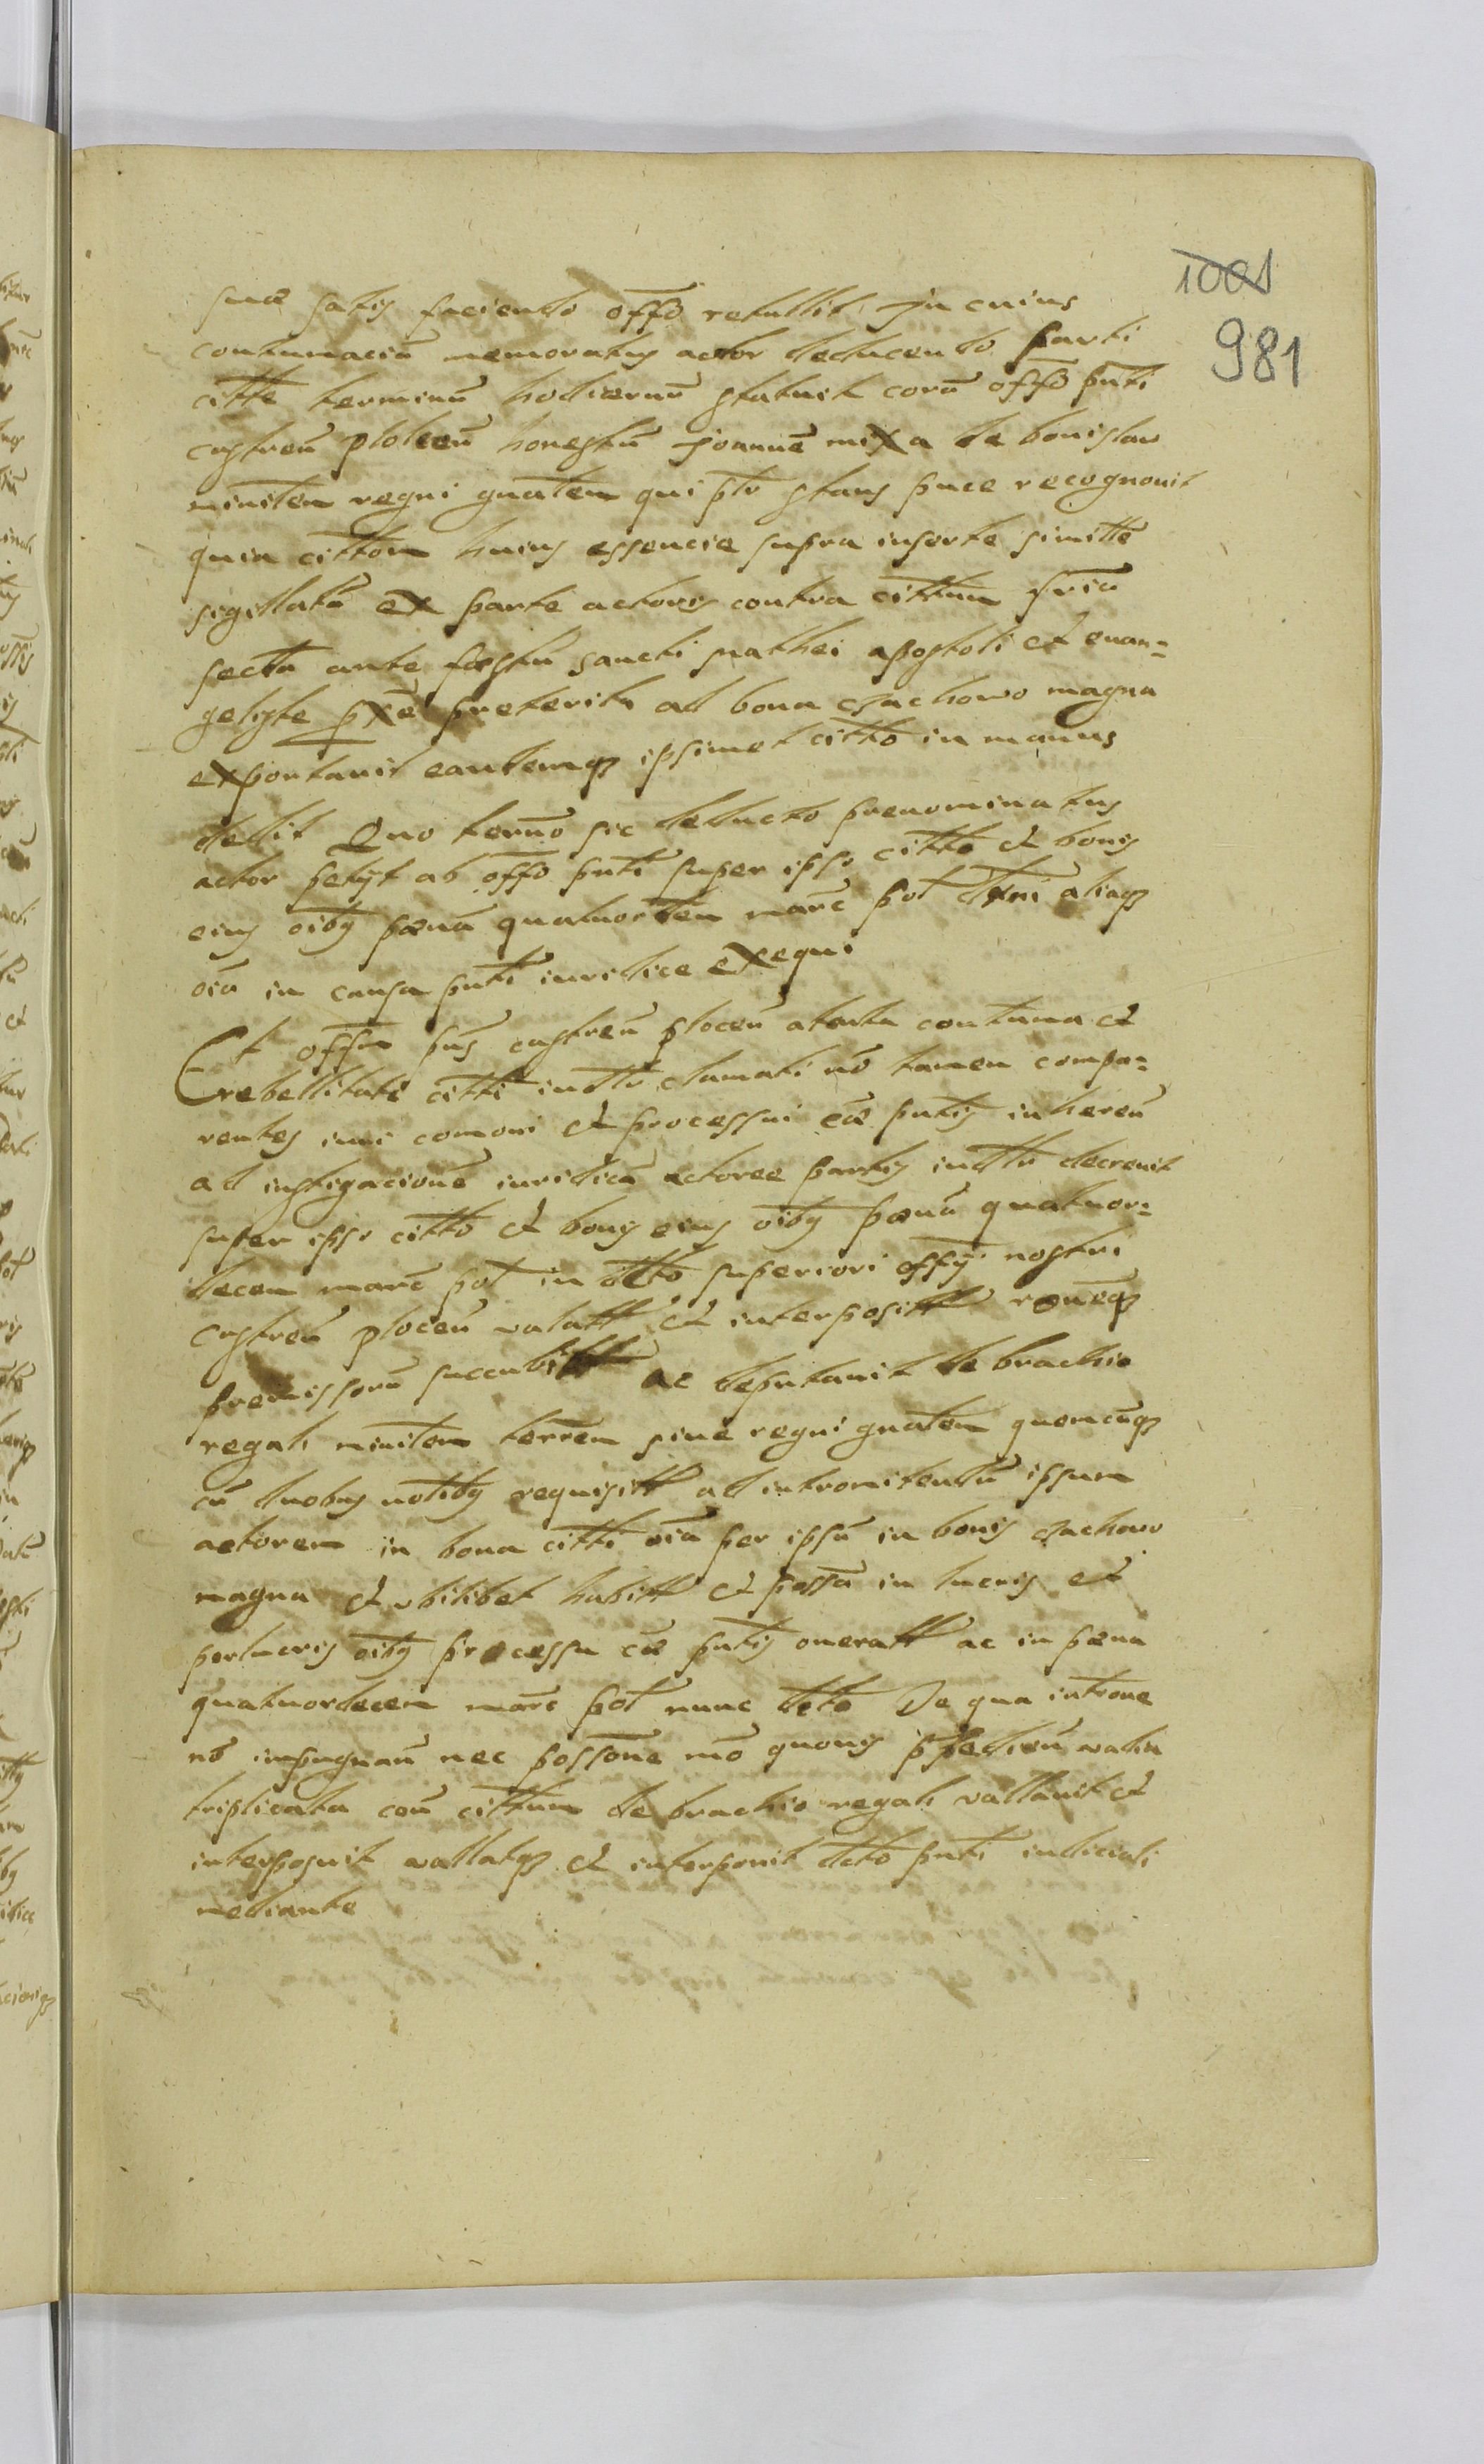 1001
981
suæ satis faciendo offo retullit In cuius
contumaciã memoratus actor deducendo parti
citte terminũ hodiernũ statuit corã offo pñti
castreñ plocen̄ honestũ Joannẽ mixa de bonislaw
minitem regni gnãlem qui pło stans pñce recognovit
quia cittõm huius essencie supra inserte simitte
sigillatã ex parte actoris contra cittum feria
secta ante festũ sancti mathei apostoli et evan=
geliste pxe preteritã ad bona czachowo magna
exportavit eandemqȝ ipsimet citto in manus
dedit Quo termo sic deducto prenominatus
actor petyt ab offo pñti super ipso citto et bonis
eius oibȝ pœnã quatuordem marc pol dni aliaqȝ
oia in causa pñti iuridice exequi
Et offm pñs castreñ ploceñ attenta contuma et
rebellitate citti indło clamati nõ tamen compa=
rentes iuri comoni et processui cæ pñtis inhereñ
ad instigacionẽ iuridicã actoree partis indło decrevit
super ipso citto et bonis eius oibȝ pœnã quatuor=
decem marc pol in dcto superiori offy nostri
Castreñ ploceñ valatt et interpositt roneqȝ
premissorũ succubitt ac deputavit de brachio
regali minitem terrem sive regni gnalem quemcũqȝ
cũ duobus notibȝ requisitt ad intromitendũ ipsum
actorem in bona citti oia per ipsũ in bonis czachowo
magna et ubilibet habitt et possa in lucris et
perlucris oibȝ processu cæ pñtis oneratt ac in pœna
quatuordecem marc pol nunc dcto De qua introne
nõ impugnañ nec possone mõ quovis valia
triplicata coñ cittum de brachio regali vallavit et
interposuit vallatqȝ et interponit dcto pñti iudiciali
mediante